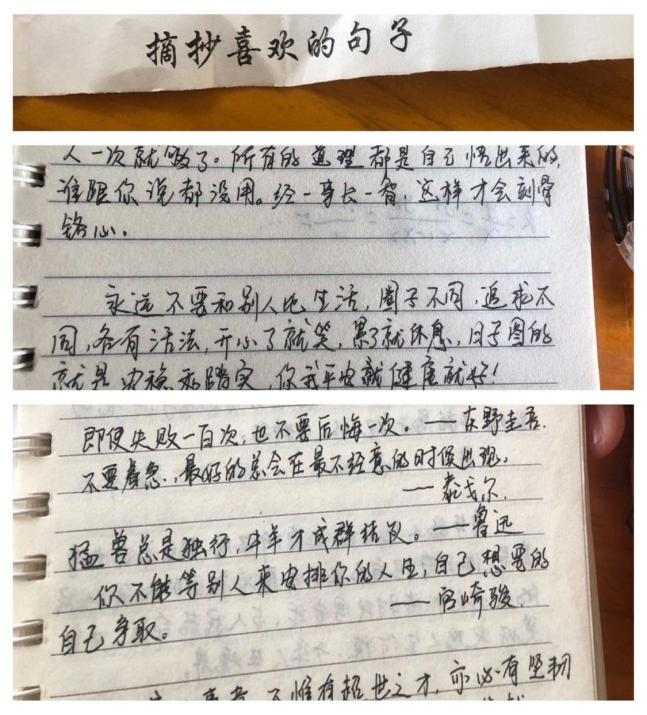 摘抄喜欢的句子
人一次就够了。所有的道理都是自己悟出来的,
谁跟你说都没用。经一事长一智,这样才会刻骨
铭心。
永远不要和别人比生活,圈子不同,追求不
同,各有活法,开心了就笑,累了就休息,日子图的
就是安稳和踏实,你我平安就健康就好!
即使失败一百次,也不要后悔一次。——东野圭吾.
不要着急,最好的总会在最不经意的时候出现。
——泰戈尔.
猛兽总是独行,牛羊才成群结队。——鲁迅
你不能等别人来安排你的人生,自己想要的
自己争取。——宫崎骏.
不惟有超世之才,亦必有坚韧